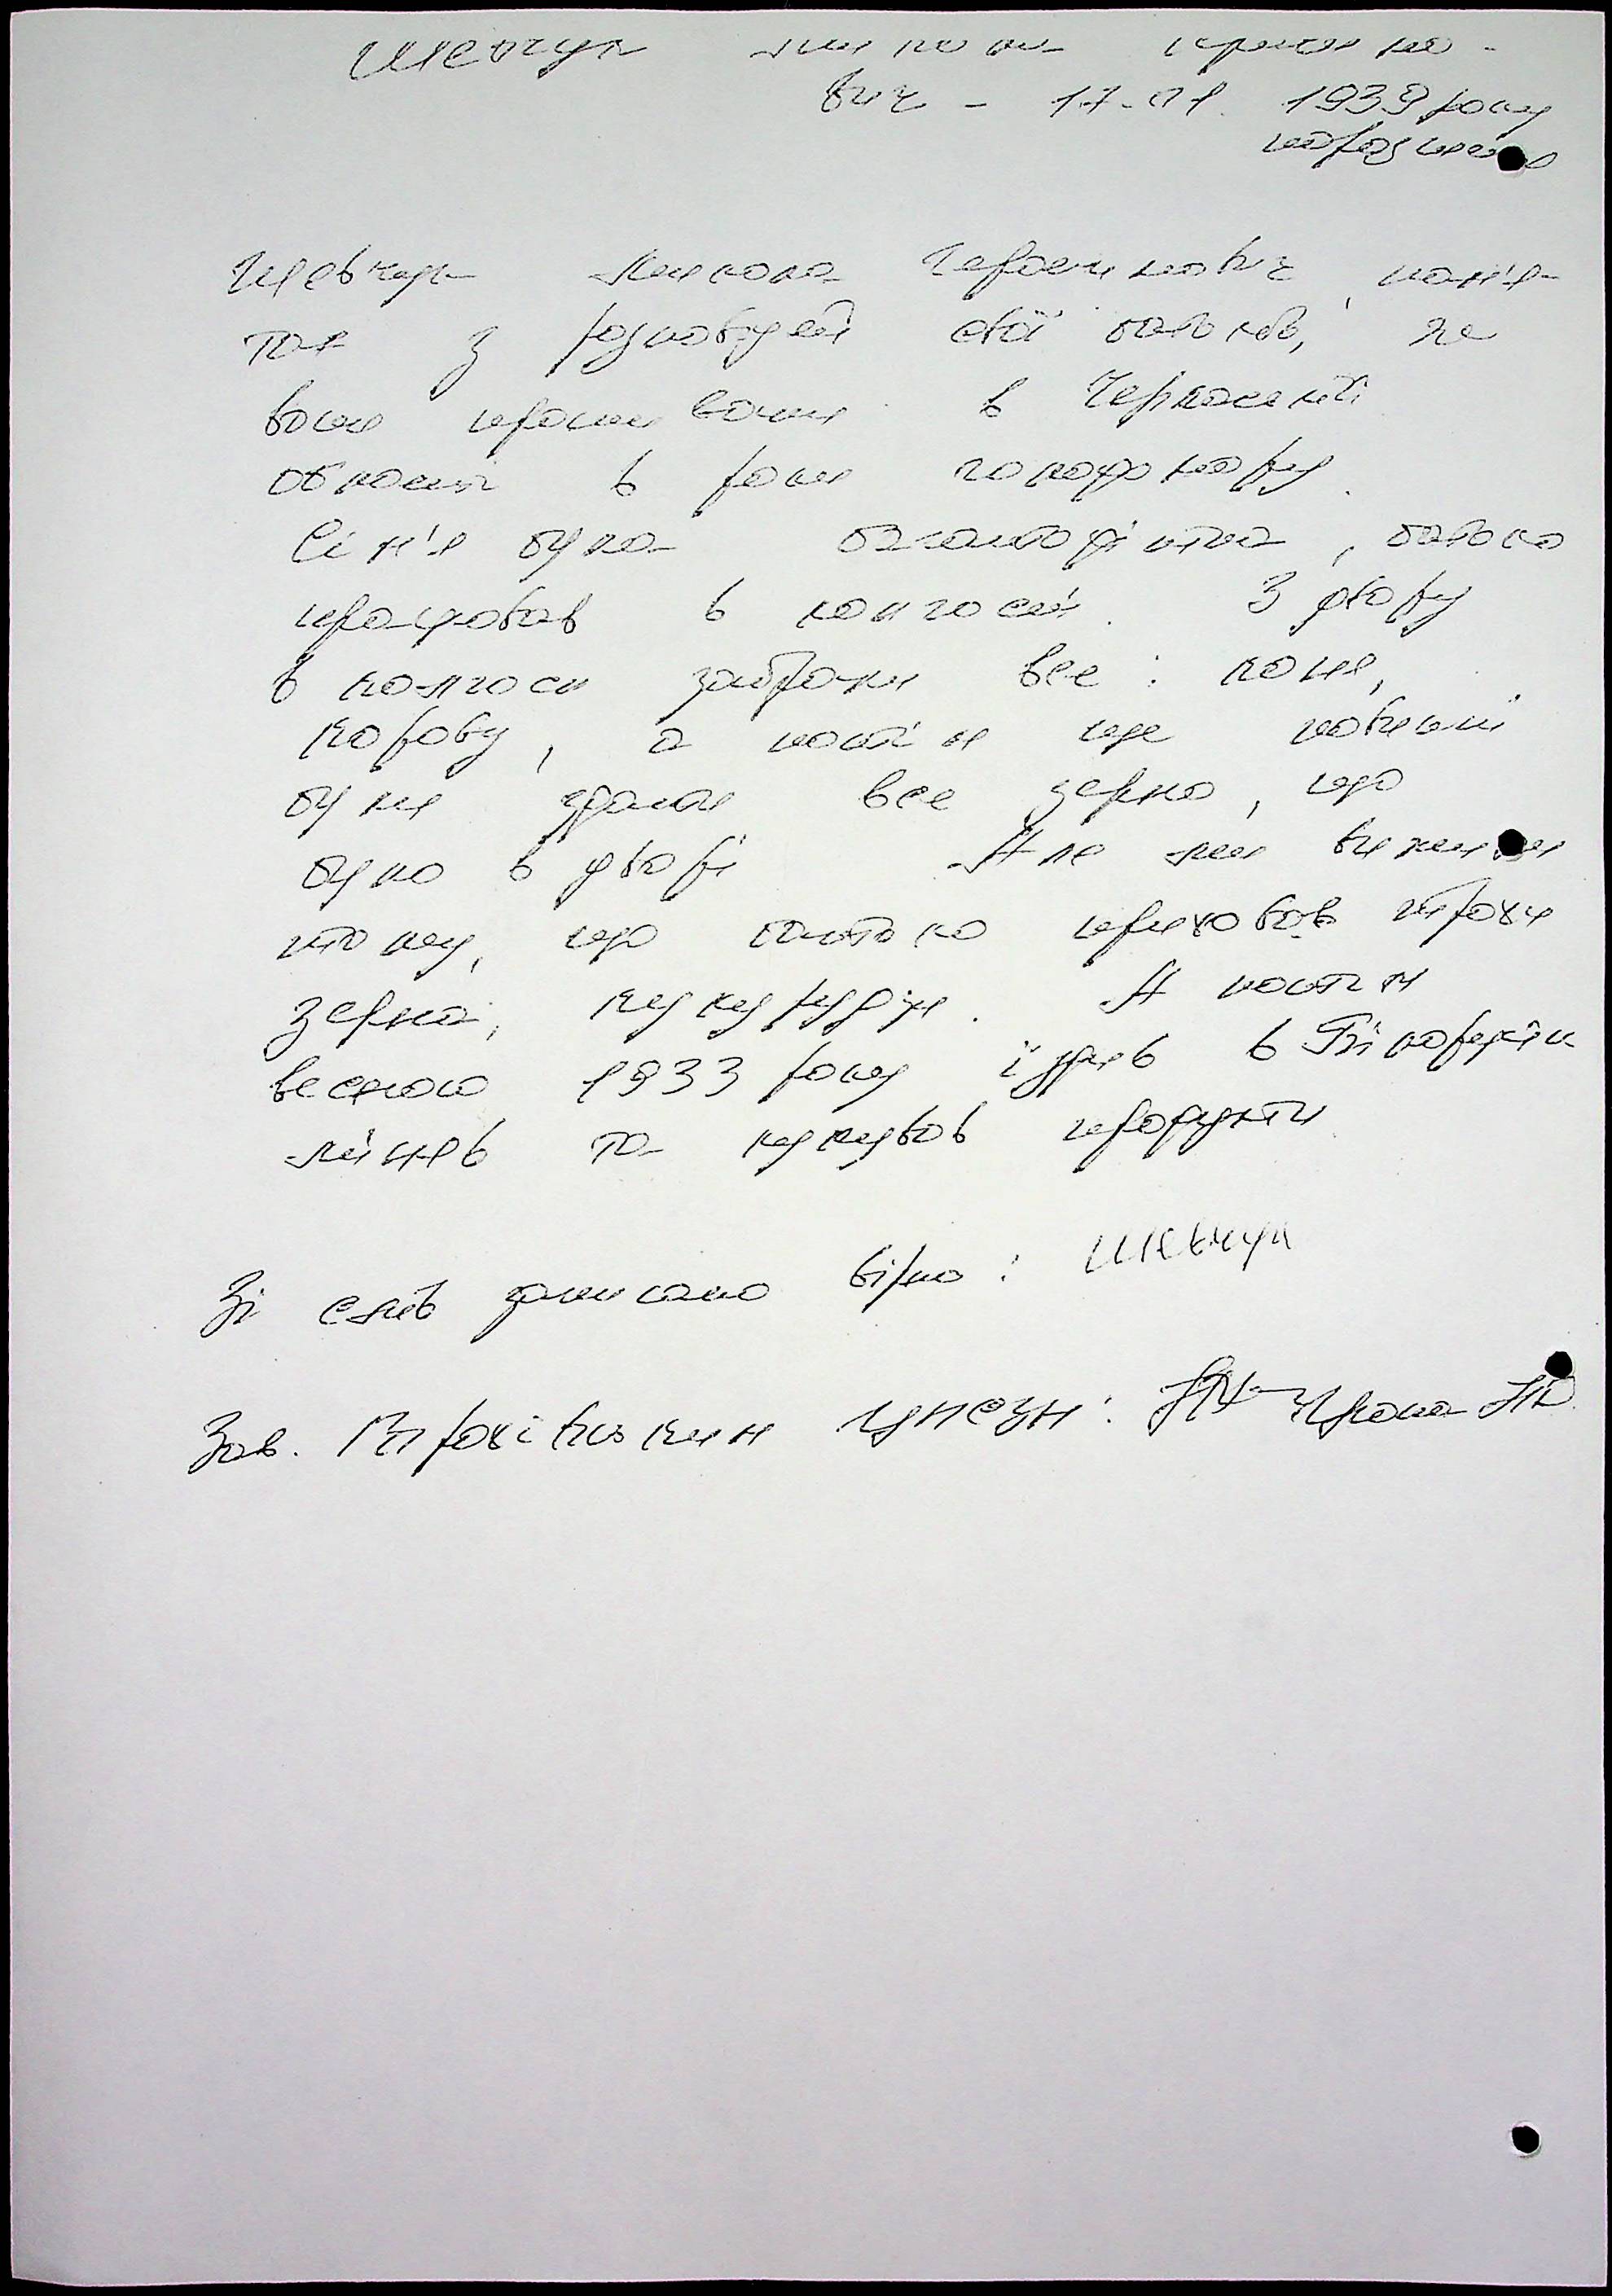 Шевчук Микола
вич - 17.01. 1939 року
народження
Шевчук Микола Герасимович, пам'я-
тає з розповідей свої батьків, як
вони проживали в Черкаській
області в роки голодомору.
Сім'я була багатодітна, батько
працював в колгоспі. З двору
в колгосп забрали все: коня,
корову, а потім ще повинні
були здати все зерно, що
було в дворі. Але ми вижили
тому, що батько приховав трохи
зерна, кукурудзи. А потім
весною 1933 року їздив в Білорусію
міняв та купував продукти
Зі слів записано вірно: Шевчук
Зав. Трохівським